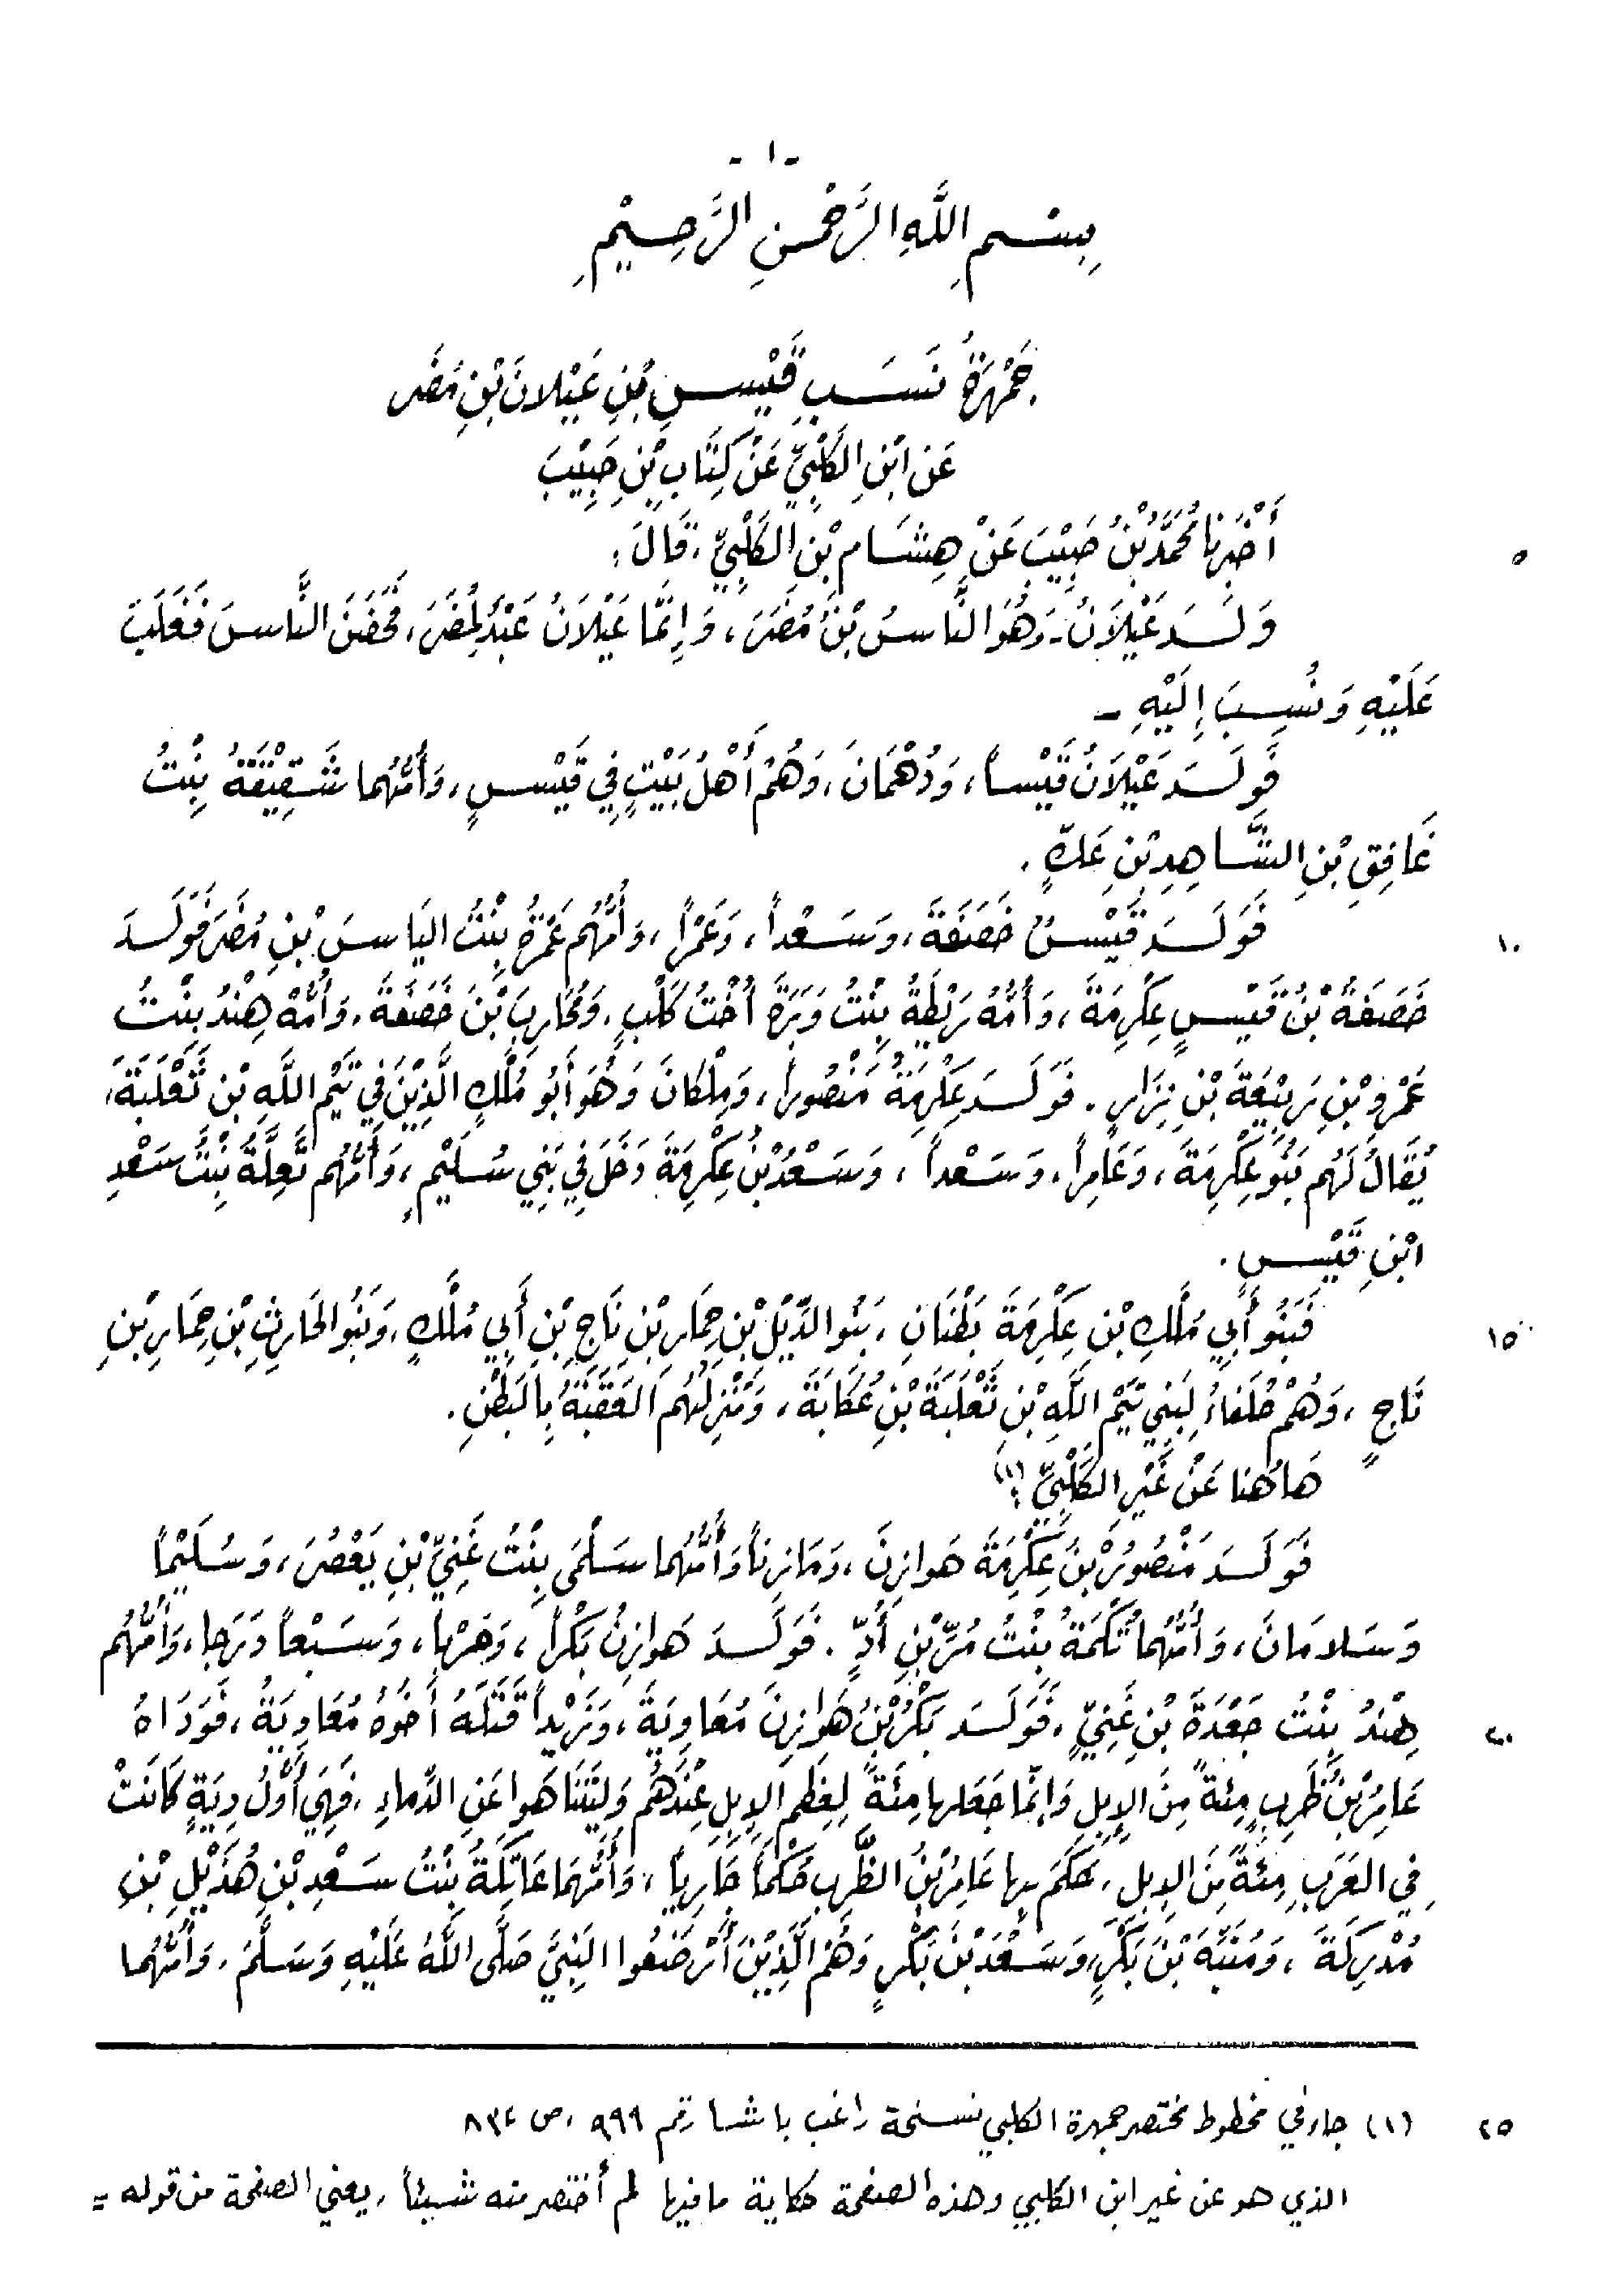 - ١ -
بِسْمِ اللَّهِ الرَّحْمٰنِ الرَّحِيْمِ
جَمْهَرَةُ نَسَبِ قَيْسِ بْنِ عَيْلانَ بْنِ مُضَر
عَنِ ابْنِ الكَلْبِيِّ عَنْ كِتَابِ بْنِ حَبِيْبَ
٥ أَخْبَرَنا مُحَمَّدُ بْنُ حَبِيْبَ عَنْ هِشَامِ بْنِ الكَلْبِيِّ، قَالَ:
وَلَدَ عَيْلَانُ - وَهُوَ النَّاسُ بْنُ مُضَرَ، وَإِنَّمَا عَيْلَانُ عَبْدٌ لِمُضَرَ، فَحَضَنَ النَّاسَ فَغَلَبَ
عَلَيْهِ وَنُسِبَ إِلَيْهِ -
فَوَلَدَ عَيْلَانُ قَيْساً، وَدُهْمَانَ، وَهُمْ أَهْلُ بَيْتٍ فِي قَيْسٍ، وَأُمُّهُما شَقِيْقَةُ بِنْتُ
غَافِقِ بْنِ الشَّاهِدِ بْنِ عَكٍّ.
١٠ فَوَلَدَ قَيْسُ خَصَفَةَ، وَسَعْداً، وَعَمْراً، وَأُمُّهُم عَمْرَةُ بِنْتُ اليَاسَ بْنِ مُضَرَ، فَوَلَدَ
خَصَفَةُ بْنُ قَيْسٍ عِكْرِمَةَ، وَأُمُّهُ رَيْطَةُ بِنْتُ وَبَرَةَ أُخْتُ كَلْبٍ، وَمُحَارِبَ بْنَ خَصَفَةَ، وَأُمُّهُ هِنْدُ بِنْتُ
عَمْرِو بْنِ رَبِيْعَةَ بْنِ نِزَارٍ. فَوَلَدَ عِكْرِمَةُ مَنْصُوراً، وَمِلْكانَ وَهُوَ أَبُو مُلْكٍ الَّذِيْنَ فِي تَيْمِ اللَّهِ بْنِ ثَعْلَبَةَ،
يُقَالُ لَهُم بَنُو عِكْرِمَةَ، وَعَامِراً، وَسَعْداً، وَسَعْدُ بْنُ عِكْرِمَةَ دَخَلَ فِي بَنِي سُلَيْمٍ، وَأُمُّهُم تَعِلَّةُ بِنْتُ سَعْدِ
ابْنِ قَيْسٍ.
١٥ فَبَنُو أَبِي مُلْكِ بْنِ عِكْرِمَةَ بَطْنَانِ، بَنُو الدِّيْلِ بْنِ حِمَارِ بْنِ نَاجِ بْنِ أَبِي مُلْكٍ، وَبَنُو الحَارِثِ بْنِ حِمَارِ بْنِ
نَاجٍ، وَهُمْ حُلَفَاءُ لِبَنِي تَيْمِ اللَّهِ بْنِ ثَعْلَبَةَ بْنِ عُكَابَةَ، وَمَنْزِلُهُم العَقَبَةُ بِالبَطْنِ.
هَاهُنا عَنْ غَيْرِ الكَلْبِيِّ:(١)
فَوَلَدَ مَنْصُورُ بْنُ عِكْرِمَةَ هَوازِنَ، وَمَازِناً وَأُمُّهُما سَلْمَى بِنْتُ غَنِيِّ بْنِ يَعْصُرَ، وَسُلَيْماً
وَسَلامَانَ، وَأُمُّهُما تُكْمَةُ بِنْتُ مُرِّ بْنِ أُدٍّ. فَوَلَدَ هَوازِنُ بَكْراً، وَحَرْباً، وَسَبْعاً دَرَجا، وَأُمُّهُم
٢٠ هِنْدُ بِنْتُ جَعْدَةَ بْنِ غَنِيٍّ، فَوَلَدَ بَكْرُ بْنُ هَوازِنَ مُعَاوِيَةَ، وَزَيْداً قَتَلَهُ أَخُوهُ مُعَاوِيَةُ، فَوَدَاهُ
عَامِرُ بْنُ ظَرِبٍ مِئَةً مِنَ الإِبِلِ وَإِنَّما جَعَلَها مِئَةً لِعِظَمِ الإِبِلِ عِنْدَهُم وَلِيَتَنَاهَوا عَنِ الدِّماءِ، فَهِيَ أَوَّلُ دِيَةٍ كَانَتْ
فِي العَرَبِ مِئَةً مِنَ الإِبِلِ، حَكَمَ بِها عَامِرُ بْنُ الظَّرِبِ حُكْماً جَارِياً، وَأُمُّهُمَا عَاتِكَةُ بِنْتُ سَعْدِ بْنِ هُذَيْلِ بْنِ
مُدْرِكَةَ، وَمُنَبِّهَ بْنَ بَكْرٍ، وَسَعْدَ بْنَ بَكْرٍ وَهُمُ الَّذِيْنَ أَرْضَعُوا النَّبِيَّ صَلَّى اللَّهُ عَلَيْهِ وَسَلَّمَ، وَأُمُّهُما
٢٥ (١) جاء في مخطوط مختصر جمهرة الكلبي نسخة راغب باشا رقم ٩٩٩، ص ٨٣٤
الذي هو عن غير ابن الكلبي وهذه الصفحة حكاية ما فيها لم أختصر منه شيئاً، يعني الصفحة من قوله =